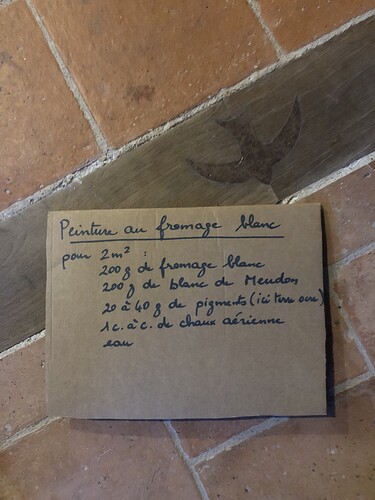 Peinture au fromage blanc
pour 2m² :
200 g de fromage blanc
200 g de blanc de Meudon
20 à 40 g de pigments (ici terre ocre)
1 c. à c. de chaux aérienne
eau